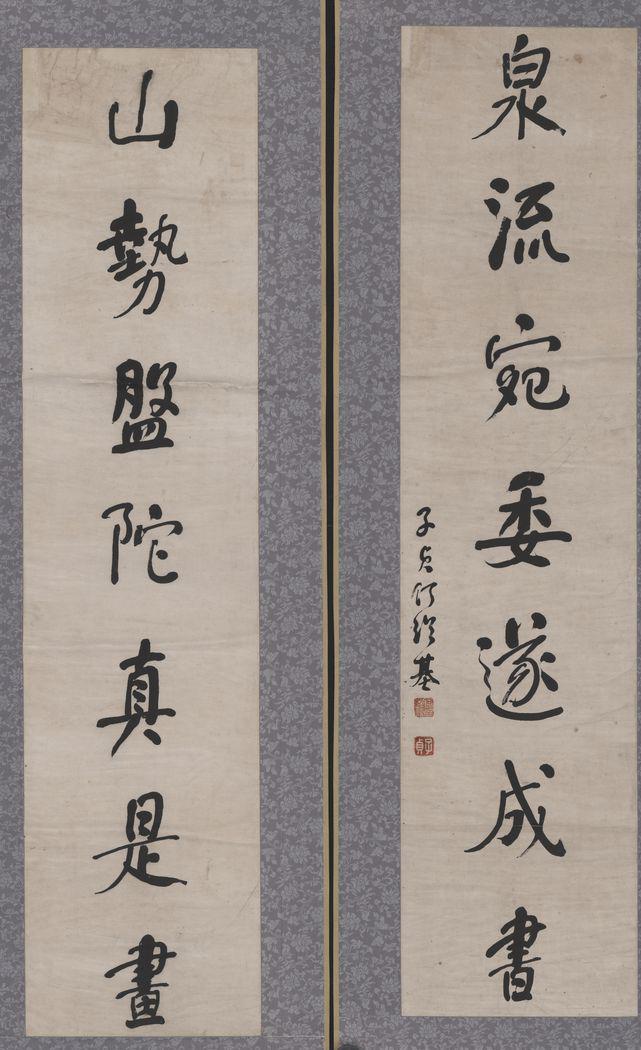 山勢盤陀真是畫
泉流宛委遂成書
子貞何紹基
子貞